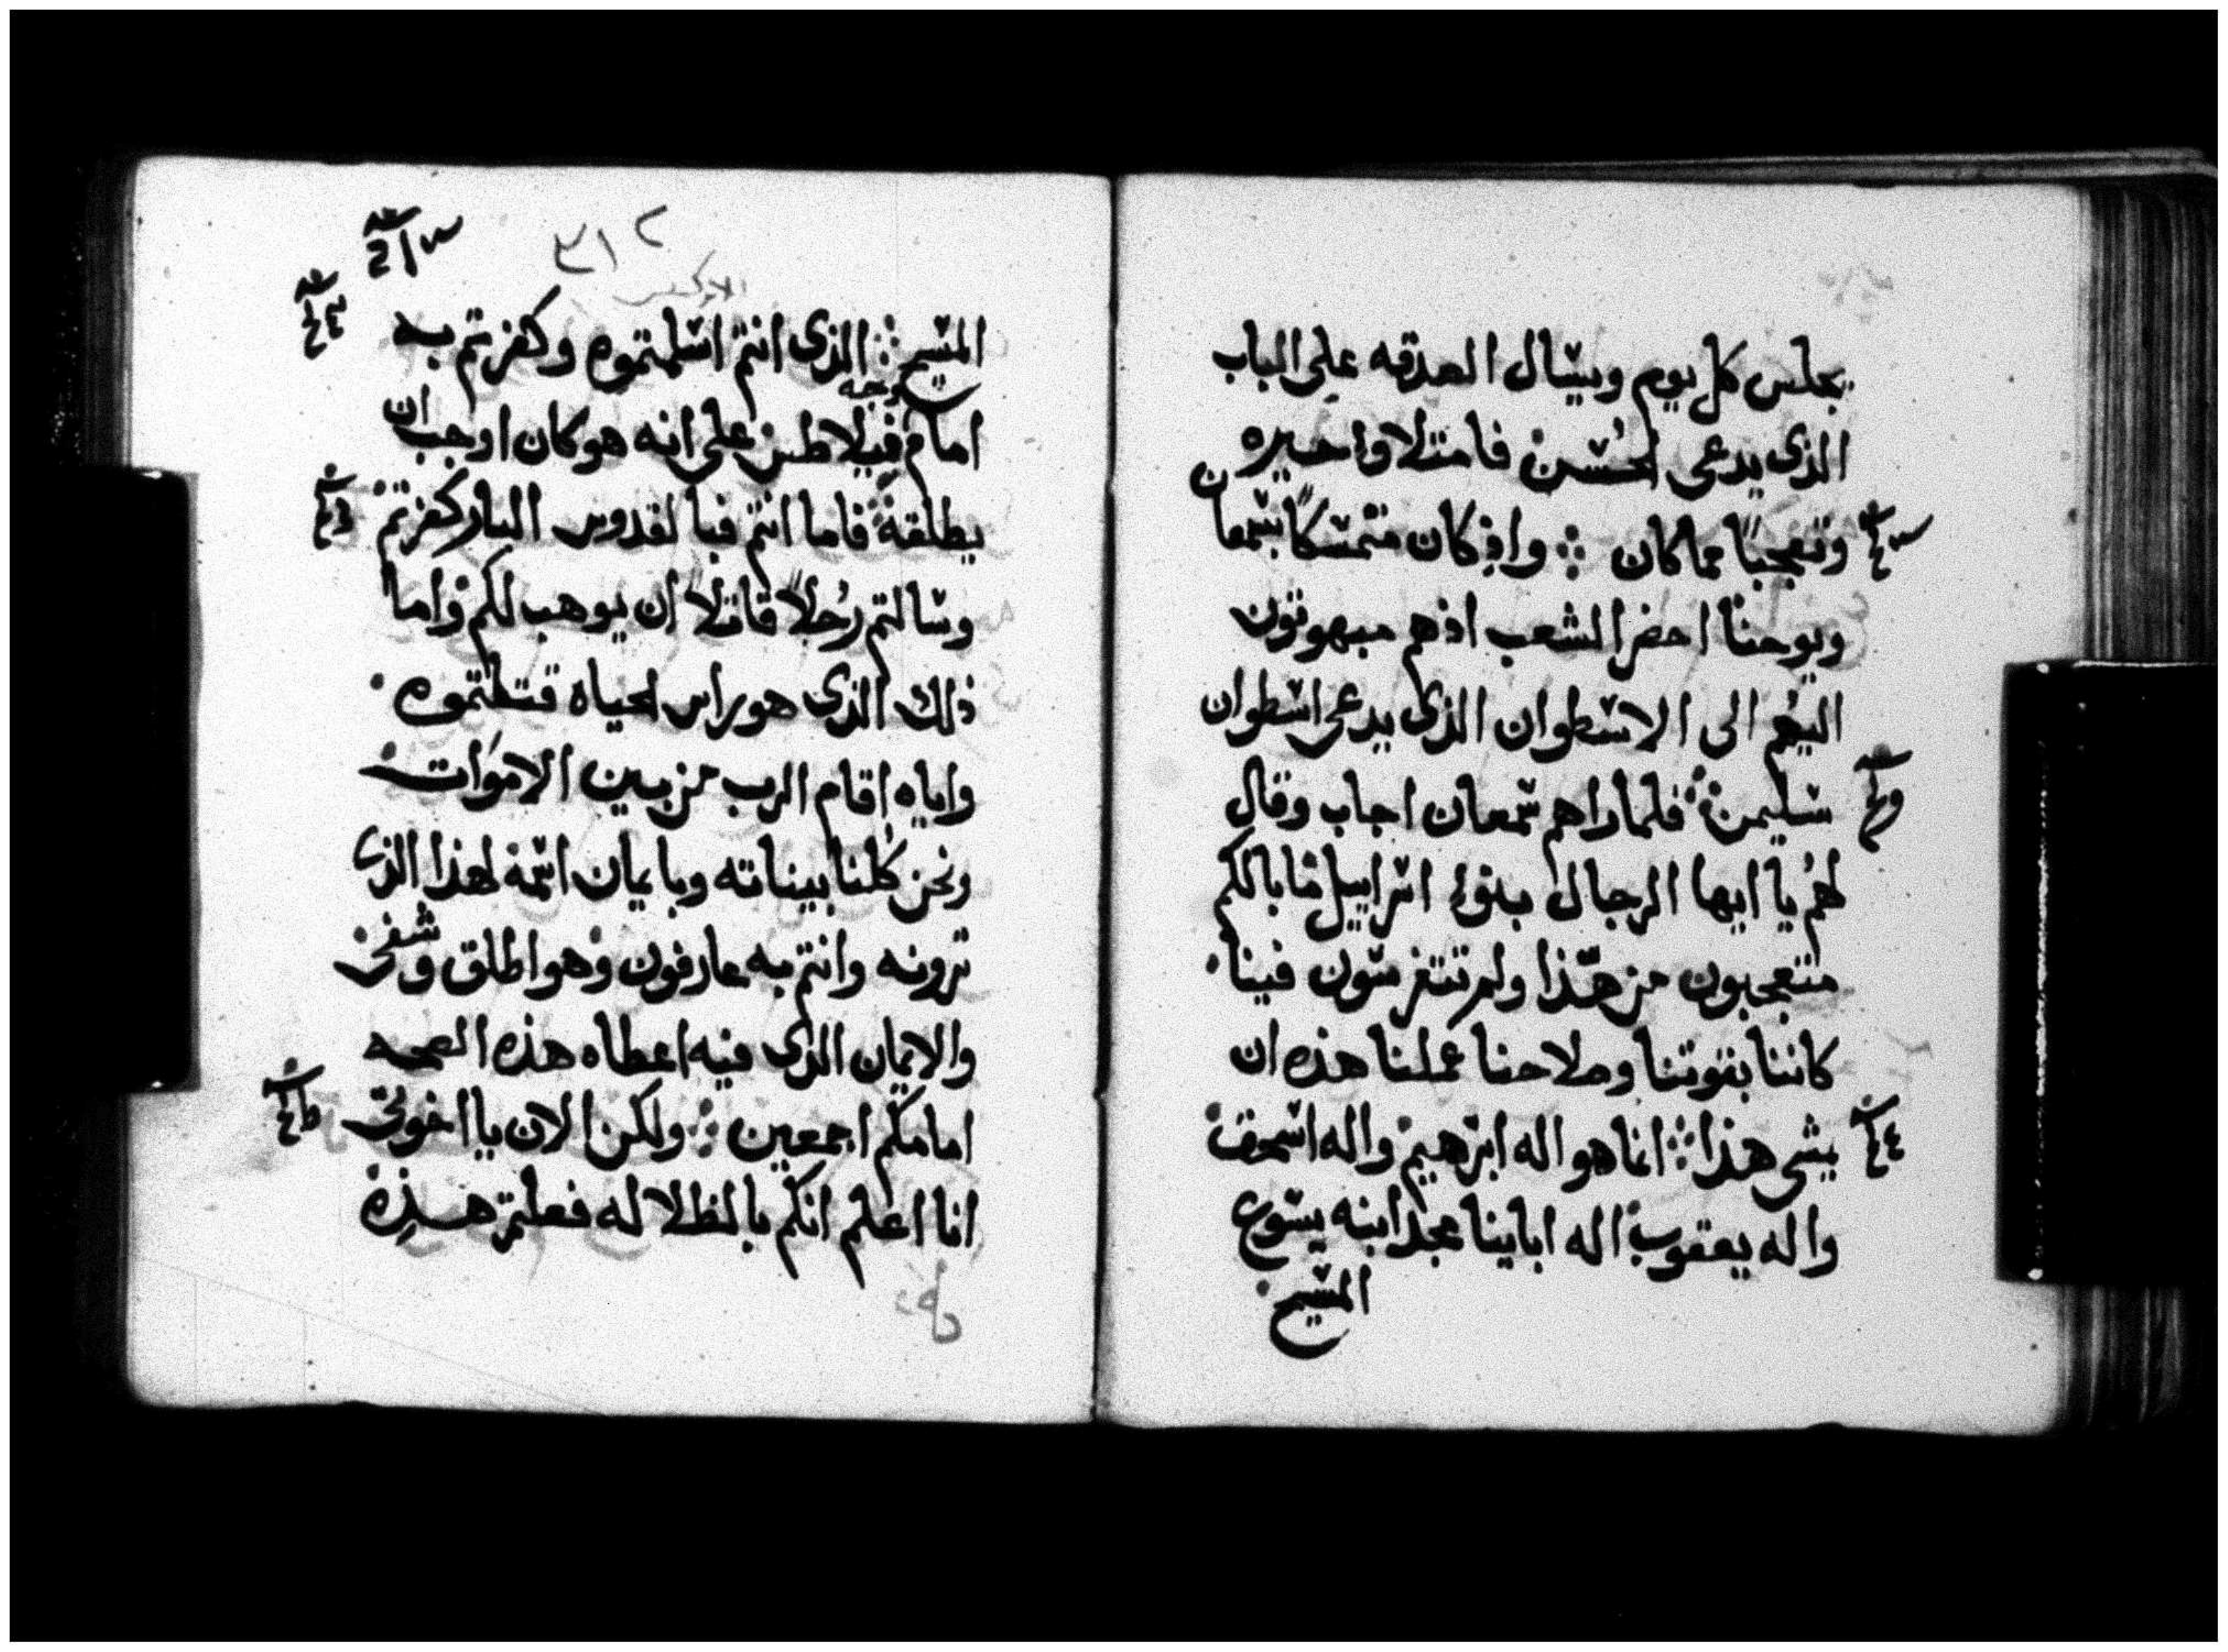 يجلس كل يوم ويسال الصدقه على الباب
الذى يدعى الحسن فامتلا وا حيره
وتعجبًا مما كان ⁘ واذ كان متمسكًا بشمعان
ويوحنا احضر الشعب اذهم مبهوتون
اليهم الى الاسطوان الذى يدعى اسطوان
سليمن ⁘ فلما راهم شمعان اجاب وقال
لهم يا ايها الرجال بنوا اسراييل ما بالكم
متعجبون من هذا ولم تتفرسون فينا
كاننا بقوتنا وصلاحنا عملنا هذه ان
يمشى هذا ⁘ انما هو اله ابرهيم واله اسحق
واله يعقوب اله ابايتنا مجد ابنه يسوع
المسيح
٣١٢
الابركسيس
المسيح ⁘ الذى انتم اسلمتموه وكفرتم به
امام وجه فيلاطس على انه هو كان اوجب ان
يطلقه ⁘ فاما انتم فبالقدوس البار كفرتم
وسالتم رجلًا قاتلًا ان يوهب لكم واما
ذلك الذى هو راس الحياه قتلتموه
واياه اقام الرب من بين الاموات
ونحن كلنا بيناته وبايمان اسمه لهذا الذى
ترونه وانتم به عارفون وهو اطلق وشفى
والايمان الذى فيه اعطاه هذه الصحه
امامكم اجمعين ⁘ ولكن الان يا اخوتى
انا اعلم انكم بالظلاله فعلتم هذه